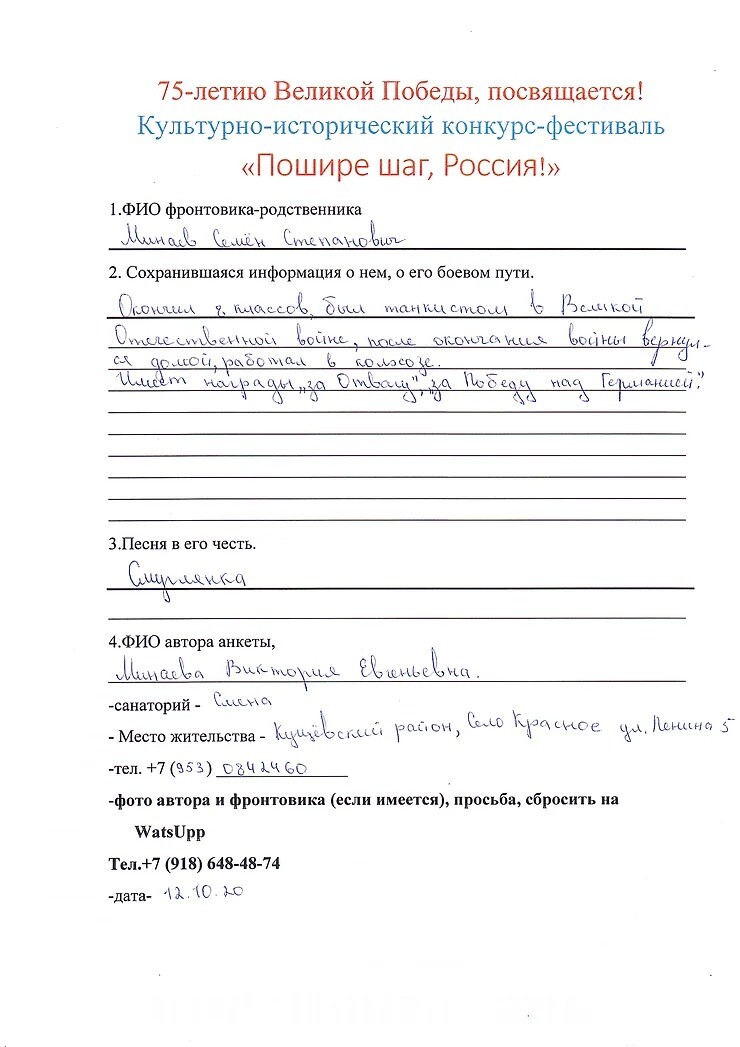 75-летию Великой Победы, посвящается!
Культурно-исторический конкурс-фестиваль
«Пошире шаг, Россия!»
1.ФИО фронтовика-родственника
Минаев Семён Степанович
2. Сохранившаяся информация о нем, о его боевом пути.
Окончил 8 классов, был танкистом в Великой
Отечественной войне, после окончания войны вернул-
ся домой, работал в колхозе.
Имеет награды „за Отвагу", „за Победу над Германией."
3.Песня в его честь.
Смуглянка
4.ФИО автора анкеты,
Минаева Виктория Евгеньевна.
-санаторий - Смена
- Место жительства - Кущёвский район, Село Красное ул. Ленина 5
-тел. +7 (953) 0842460
-фото автора и фронтовика (если имеется), просьба, сбросить на
WatsUpp
Тел.+7 (918) 648-48-74
-дата- 12.10.20